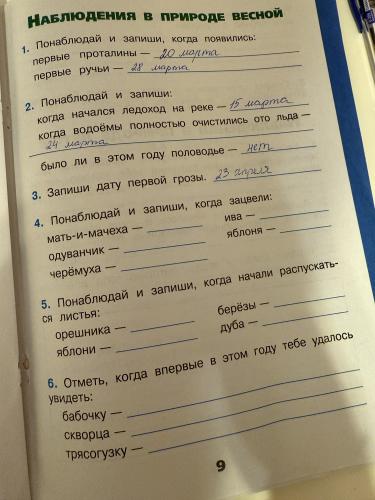 НАБЛЮДЕНИЯ В ПРИРОДЕ ВЕСНОЙ
1. Понаблюдай и запиши, когда появились:
первые проталины — 20 марта
первые ручьи — 28 марта
2. Понаблюдай и запиши:
когда начался ледоход на реке — 15 марта
когда водоёмы полностью очистились ото льда —
24 марта
было ли в этом году половодье — нет
3. Запиши дату первой грозы. 23 апреля
4. Понаблюдай и запиши, когда зацвели:
мать-и-мачеха — ива —
одуванчик — яблоня —
черёмуха —
5. Понаблюдай и запиши, когда начали распускать-
ся листья:
орешника — берёзы —
яблони — дуба —
6. Отметь, когда впервые в этом году тебе удалось
увидеть:
бабочку —
скворца —
трясогузку —
9